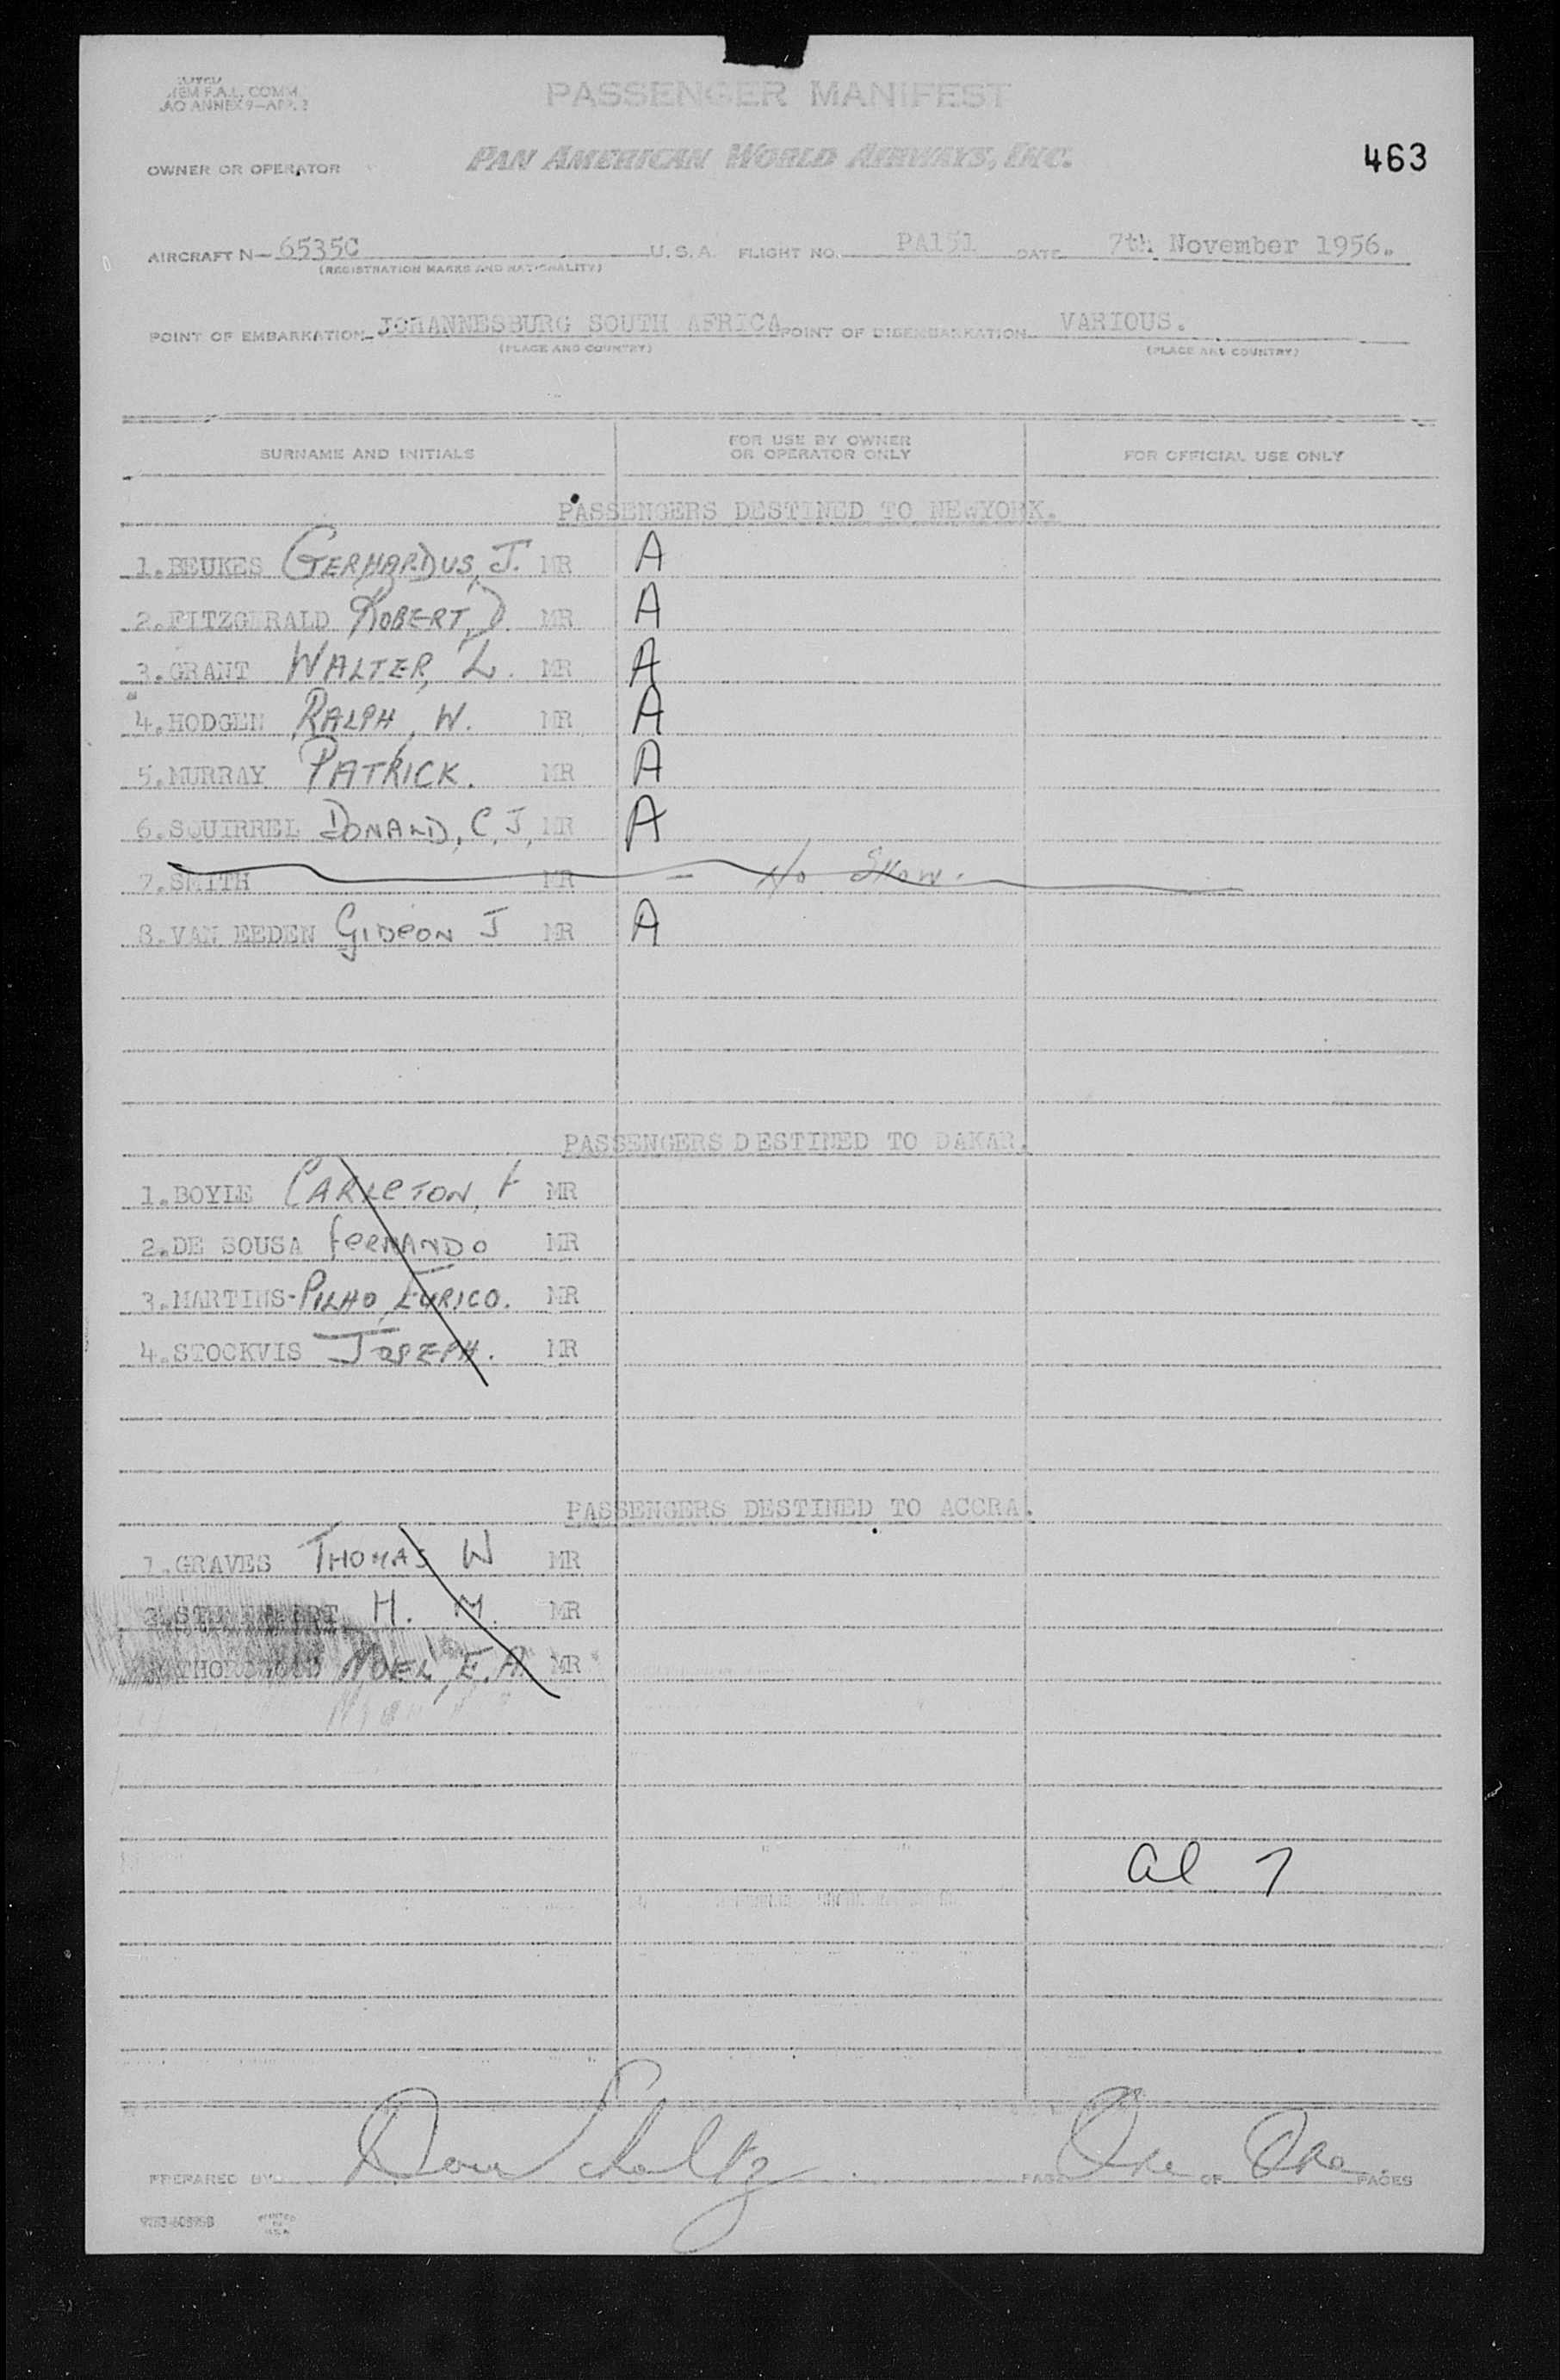 PASSENGER MANIFEST
F.A.L. COMM.
ANNEX 9—APP. 2
OWNER OR OPERATOR PAN AMERICAN WORLD AIRWAYS, INC. 463
AIRCRAFT N— 6535C U.S.A. FLIGHT NO. PA151 DATE 7th November 1956.
(REGISTRATION MARKS AND NATIONALITY)
POINT OF EMBARKATION JOHANNESBURG SOUTH AFRICA POINT OF DISEMBARKATION VARIOUS.
(PLACE AND COUNTRY) (PLACE AND COUNTRY)
SURNAME AND INITIALS FOR USE BY OWNER OR OPERATOR ONLY FOR OFFICIAL USE ONLY
PASSENGERS DESTINED TO NEWYORK.
1.BEUKES GERHARDUS, J. MR A
2.FITZGERALD ROBERT, D. MR A
3.GRANT WALTER, L. MR A
4.HODGEN RALPH, W. MR A
5.MURRAY PATRICK. MR A
6.SQUIRREL DONALD, C, J, MR A
7.SMITH MR - No Show.
8.VAN EEDEN GIDeON J MR A
PASSENGERS DESTINED TO DAKAR.
1.BOYLE CARLeTON, MR
2.DE SOUSA feRNANDO MR
3.MARTINS-PILHO, EURICO. MR
4.STOCKVIS JOSEPH. MR
PASSENGERS DESTINED TO ACCRA.
1.GRAVES THOMAS W MR
H. M. MR
NOEL, E.A. MR
al 7
PREPARED BY Don Scholtz PAGE One OF One. PAGES
PRINTED IN U.S.A.